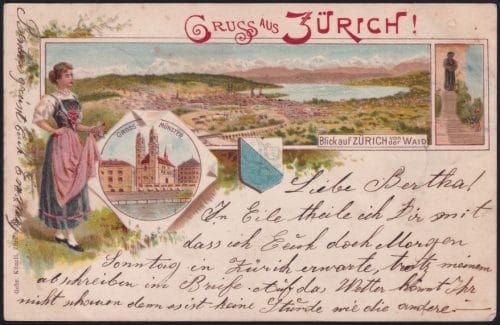 Gruss aus Zürich!
Blick auf ZÜRICH von der WAID
GROSS MÜNSTER
Liebe Bertha!
In Eile theile ich Dir mit
dass ich Euch doch Morgen
Sonntag in Zürich erwarte, trotz meinem
abschreiben im Briefe. Auf das Wetter könnt Ihr
nicht schauen denn es ist keine Stunde wie die andere.
Gebr. Künzli